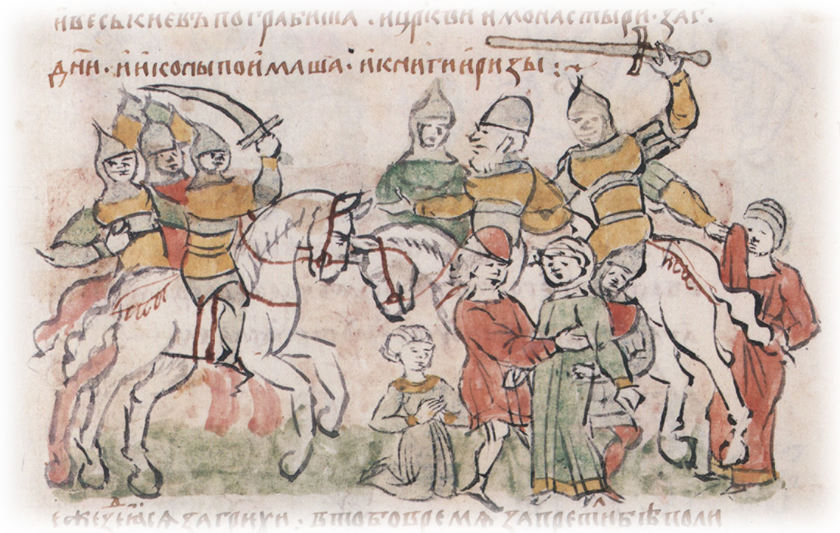 и весь киевъ пограбиша · и цркви и монастыри · за г ·
дни · и иконы поимаша · и книги и ризы :~
за грихи · в то бо время запретилъ бѣ поли